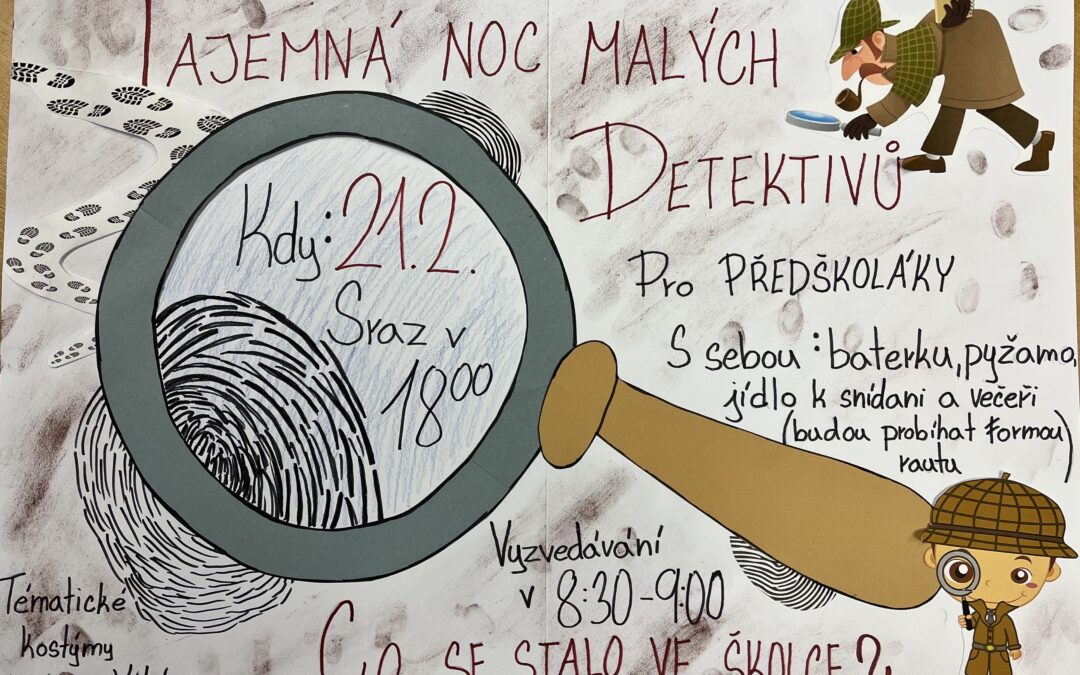 TAJEMNÁ NOC MALÝCH
DETEKTIVŮ
Kdy: 21.2.
Sraz v
18⁰⁰
Pro PŘEDŠKOLÁKY
S sebou: baterku, pyžamo,
jídlo k snídani a večeři
(budou probíhat formou)
rautu
Vyzvedávání
v 8:30-9:00
Tématické
kostýmy
CO SE STALO VE ŠKOLCE?